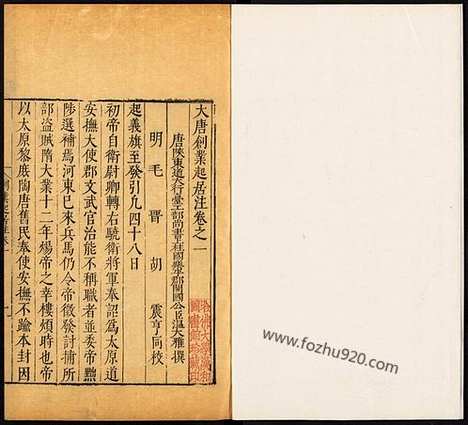 大唐創業起居注卷之一
唐陝東道大行臺工部尚書上柱國樂平郡開國公臣溫大雅撰
明毛晉胡震亨同校
起義旗至發引凡四十八日
初帝自衛尉卿轉右驍衛將軍奉詔為太原道
安撫大使郡文武官治能不稱職者並委帝黜
陟選補焉河東已來兵馬仍令帝徵發討捕所
部盜賊隋大業十二年煬帝之幸樓煩時也帝
以太原黎庶陶唐舊民奉使安撫不踰本封因
www.fozhu920.com